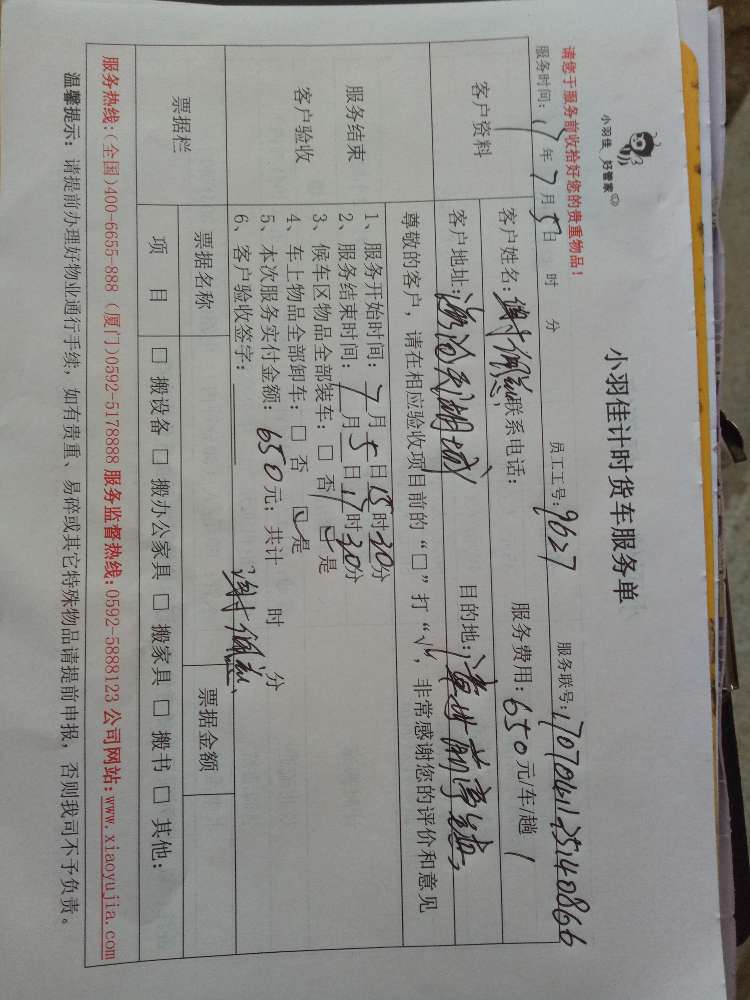 小羽佳 好管家
小羽佳计时货车服务单
请您于服务前收拾好您的贵重物品！
服务时间：17年7月5日 时 分 员工工号：9627 服务联号：1707041125140866
客户资料
客户姓名： 联系电话： 服务费用：650元/车/趟
客户地址： 目的地：
服务结束
客户验收
尊敬的客户，请在相应验收项目前的“□”打“√”，非常感谢您的评价和意见
1、服务开始时间：7月5日15时30分
2、服务结束时间：7月5日17时30分
3、候车区物品全部装车：□否 ☑是
4、车上物品全部卸车：□否 ☑是
5、本次服务实付金额：650元；共计 时 分
6、客户验收签字：
票据栏
票据名称 票据金额
项目 □搬设备 □搬办公家具 □搬家具 □搬书 □其他：
服务热线:(全国)400-6655-888 (厦门)0592-5178888 服务监督热线:0592-5888123 公司网站:www.xiaoyujia.com
温馨提示：请提前办理好物业通行手续，如有贵重、易碎或其它特殊物品请提前申报，否则我司不予负责。